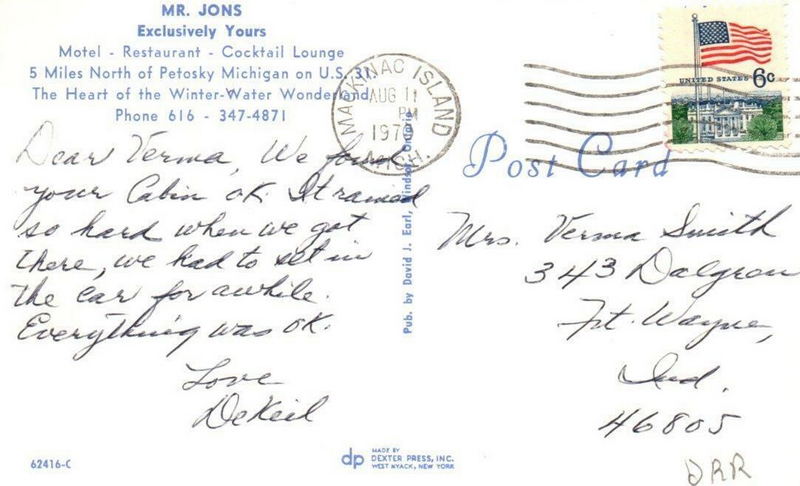 MR. JONS
Exclusively Yours
Motel - Restaurant - Cocktail Lounge
5 Miles North of Petosky Michigan on U.S. 31
The Heart of the Winter-Water Wonderland
Phone 616 - 347-4871
Dear Verma, We found
your Cabin ok. It rained
so hard when we got
there, we had to set in
the car for awhile.
Everything was OK.
Love
DeKeil
62416-C
Pub. by David J. Earl, Windsor, Ontario
dp
MADE BY
DEXTER PRESS, INC.
WEST NYACK, NEW YORK
MACKINAC ISLAND
AUG 11
PM
MICH.
UNITED STATES 6c
Post Card
Mrs. Verma Smith
343 Dalgren
Ft. Wayne,
Ind.
46805
DRR